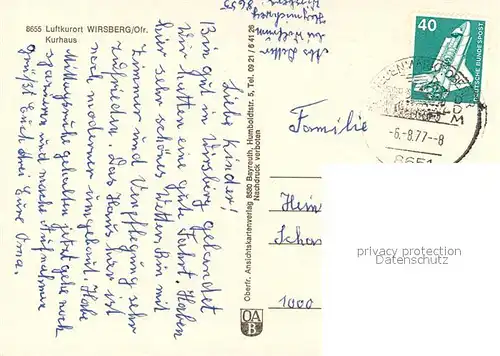 8655 Luftkurort WIRSBERG/Ofr.
Kurhaus
Liebe Kinder!
Bin gut in Wirsberg gelandet
wir hatten eine gute Fahrt. Haben
hier sehr schönes Wetter. Bin mit
Zimmer und Verpflegung sehr
zufrieden. Das Haus hier ist
noch moderner umgebaut. Habe
Mittagsruhe gehalten jetzt geh noch
spazieren und mache Aufnahmen
grüßt Euch drei Eure Oma.
Oberfr. Ansichtskartenverlag 8580 Bayreuth, Humboldtstr. 5, Tel. 09 21 / 6 41 26
Nachdruck verboten
OA
B
8655
40
DEUTSCHE BUNDESPOST
-6.-8.77--8
8651
Familie
1000
privacy protection
Datenschutz